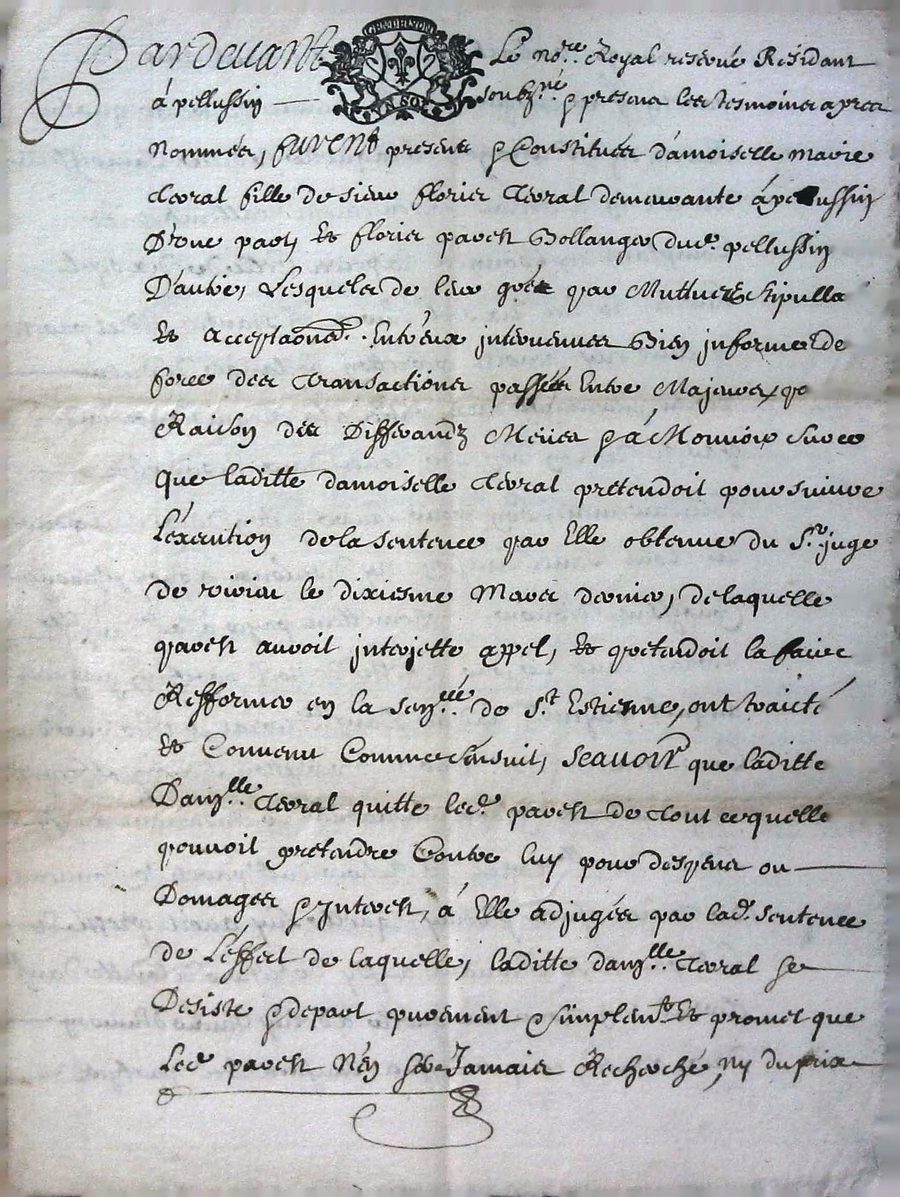 Pardevant Le nore Royal reservé Residant
GEN DE LYON
UN SOL
à pellussin soubzné & presens les tesmoins apres
nommés, furent presens & Constitués damoiselle marie
fille de sieur floris demeurante à pellussin
D'une part, et floris Bollanger dud. pellussin
D'autre, Lesquels de leur gré par Muttuelle stipulla
et acceptaõns. Entr'eux intervenues Bien informés de
force des transactions passées Entre Majeurs, po
Raison des Differandz Meües & à Mouvoir sur ce
que laditte damoiselle pretendoit poursuivre
L'exeution de la sentence par Elle obtenue du Sr. juge
de le dixiesme Mars dernier, de laquelle
avoit interjetté appel, et pretendoit la faire
Refformer en la senéée de St. Estienne, ont traicté
et Convenu Comme s'ensuit, scavoir que laditte
Damlle quitte led. de tout ce quelle
pouvoit pretendre Contre luy pour despens ou
Domages & Interest, à Elle adjugés par lad. sentence
de L'effect de laquelle, laditte damlle se
Desiste & depart purement & simplemt. et promet que
Led. N'en sera Jamais Recherché, ny du prix